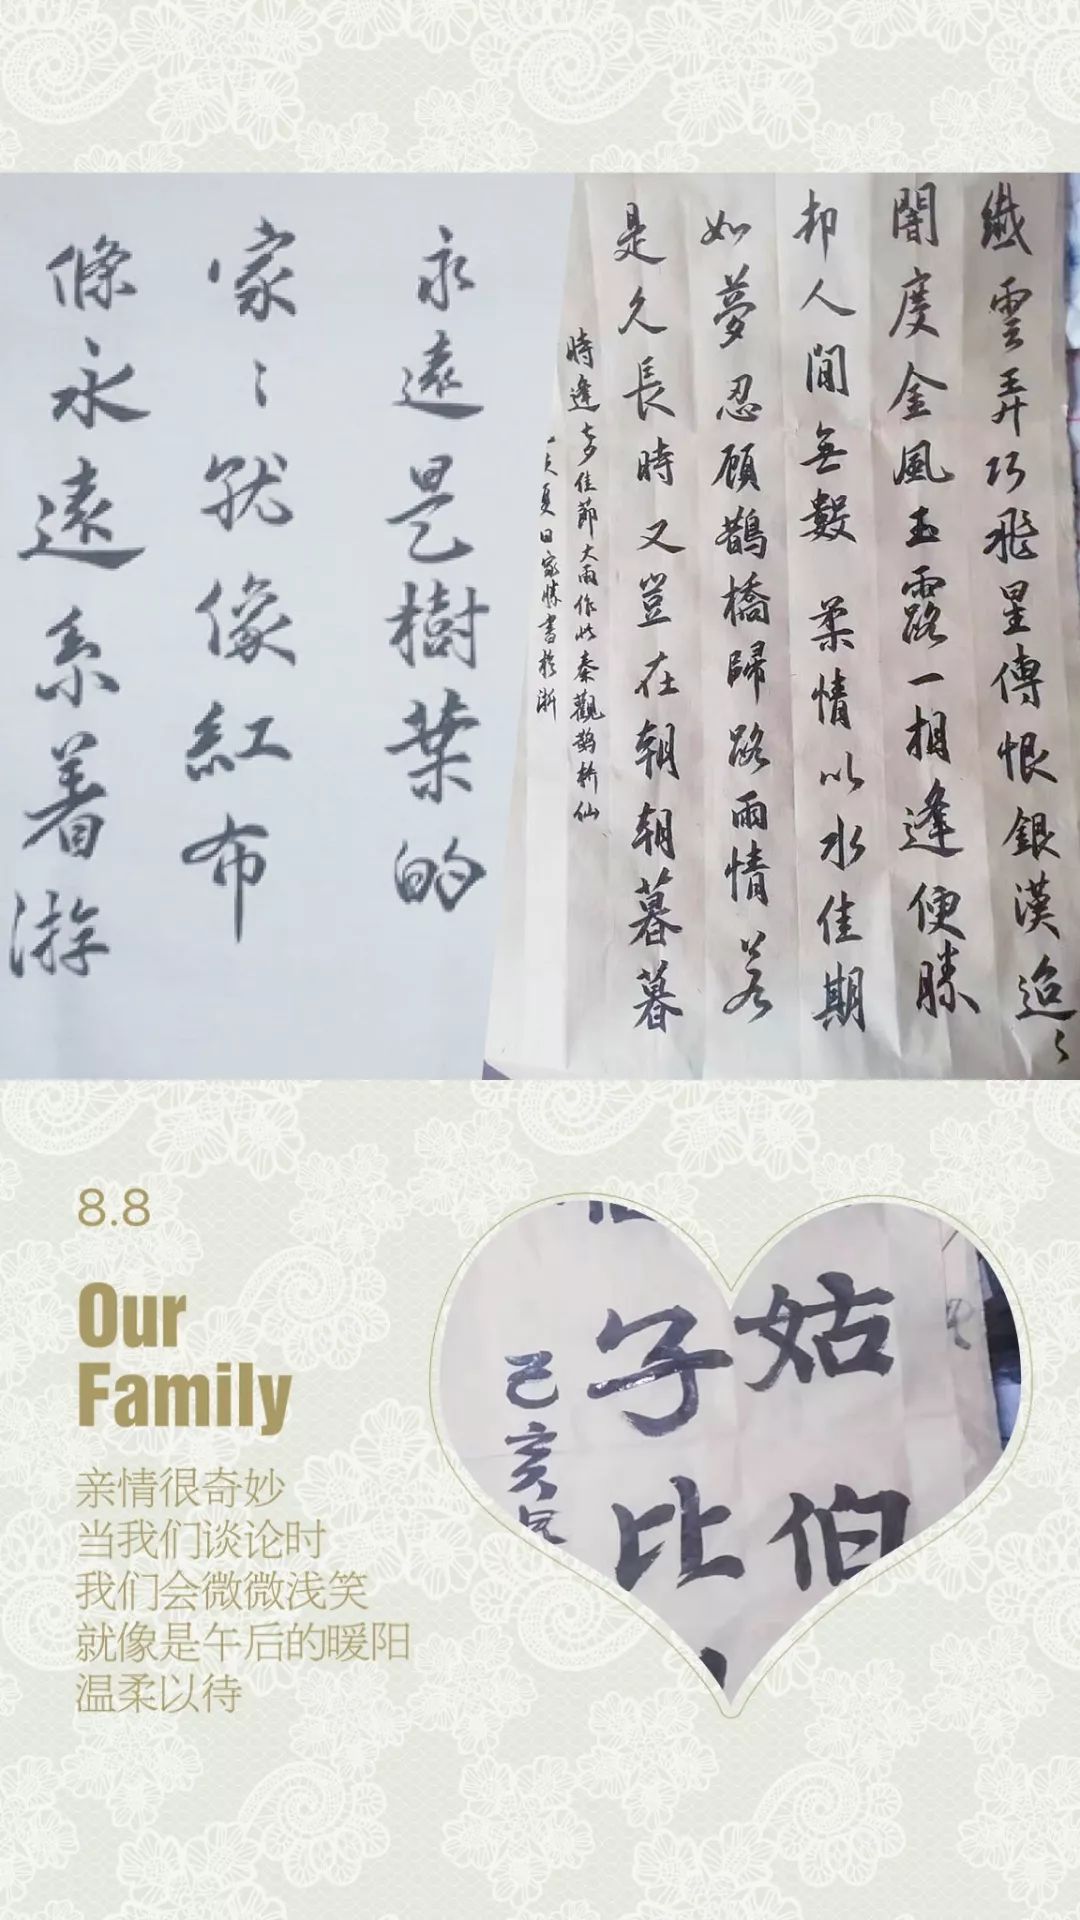 永遠是樹葉的
家〻就像紅布
條永遠系着游
纖雲弄巧飛星傳恨銀漢迢〻
闇度金風玉露一相逢便勝
却人間無數 柔情似水佳期
如夢忍顧鵲橋歸路兩情若
是久長時又豈在朝朝暮暮
時逢七夕佳節大雨作此秦觀鵲桥仙
夏日家勝書於浙
8.8
Our
Family
亲情很奇妙
当我们谈论时
我们会微微浅笑
就像是午后的暖阳
温柔以待
姑伯
子比
己亥